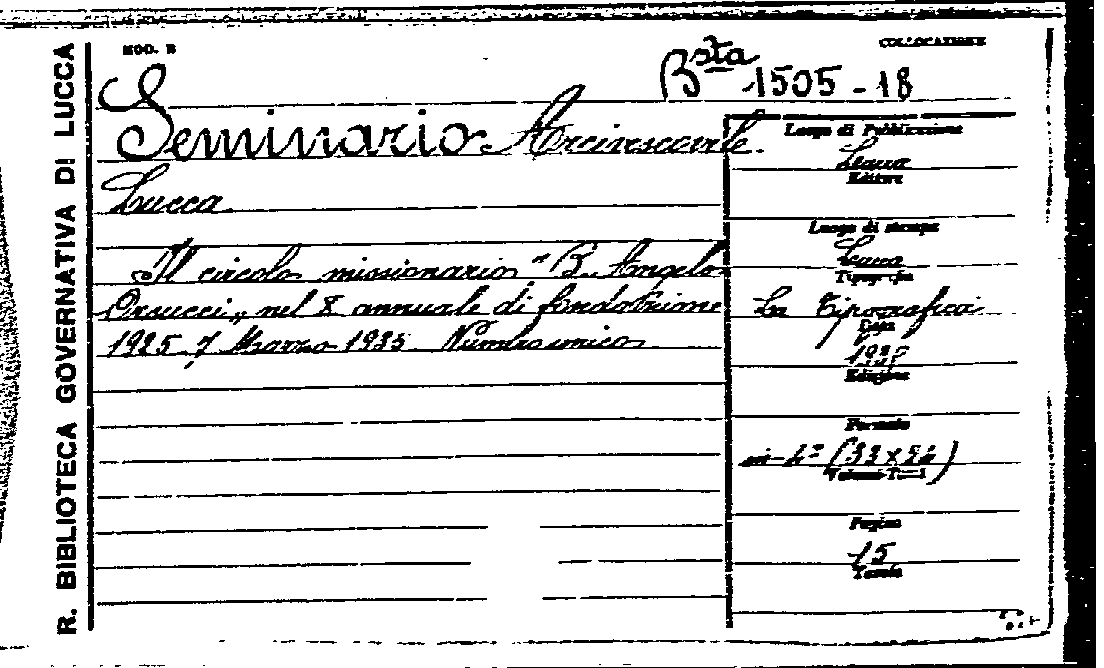 R. BIBLIOTECA GOVERNATIVA DI LUCCA
MOD. B
COLLOCAZIONE
Bsta 1505-18
Seminario Arcivescovile
Lucca
Il circolo missionario "B. Angelo
Orsucci" nel X annuale di fondazione
1925 7 Marzo 1935 Numero unico
Luogo di Pubblicazione
Lucca
Editore
Luogo di stampa
Lucca
Tipografia
La Tipografica
Data
Edizione
Formato
in-4° (33x24)
Volumi-Tomi
Pagine
15
Tavole